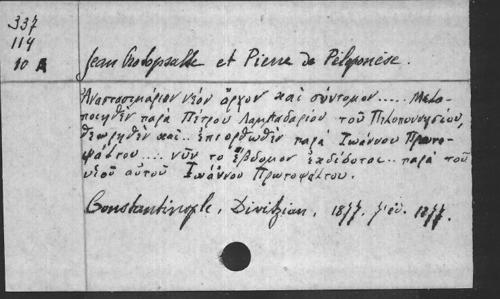 337
114
10 A
Jean Protopsalte et Pierre de Péloponèse.
Ἀναστασιμάριον νέον ἀργὸν καὶ σύντομον..... Μελο-
ποιηθὲν παρὰ Πέτρου Λαμπαδαρίου τοῦ Πελοποννησίου,
θεωρηθὲν καὶ.. ἐπιορθωθὲν παρὰ Ἰωάννου Πρωτο-
ψάλτου.... νῦν τὸ ἕβδομον ἐκδίδοται.. παρὰ τοῦ
υἱοῦ αὐτοῦ Ἰωάννου Πρωτοψάλτου.
Constantinople, Divitzian, 1877. 7 éd. 1877.